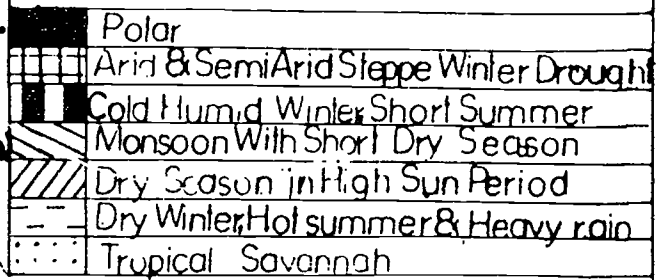 Polar
Arid & SemiArid Steppe Winter Drought
Cold Humid Winter, Short Summer
Monsoon With Short Dry Season
Dry Season in High Sun Period
Dry Winter, Hot summer & Heavy rain
Tropical Savannah